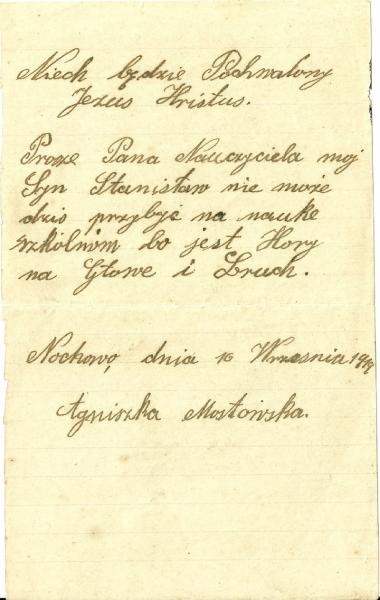 Niech będzie Pochwalony
Jezus Hristus.
Prosze Pana Nauczyciela moj
Syn Stanisław nie może
dzis przybyć na nauke
szkolnom bo jest Hory
na Głowe i Bruch.
Nochowo, dnia 10 Wrzesnia
Agniszka Mostowska.